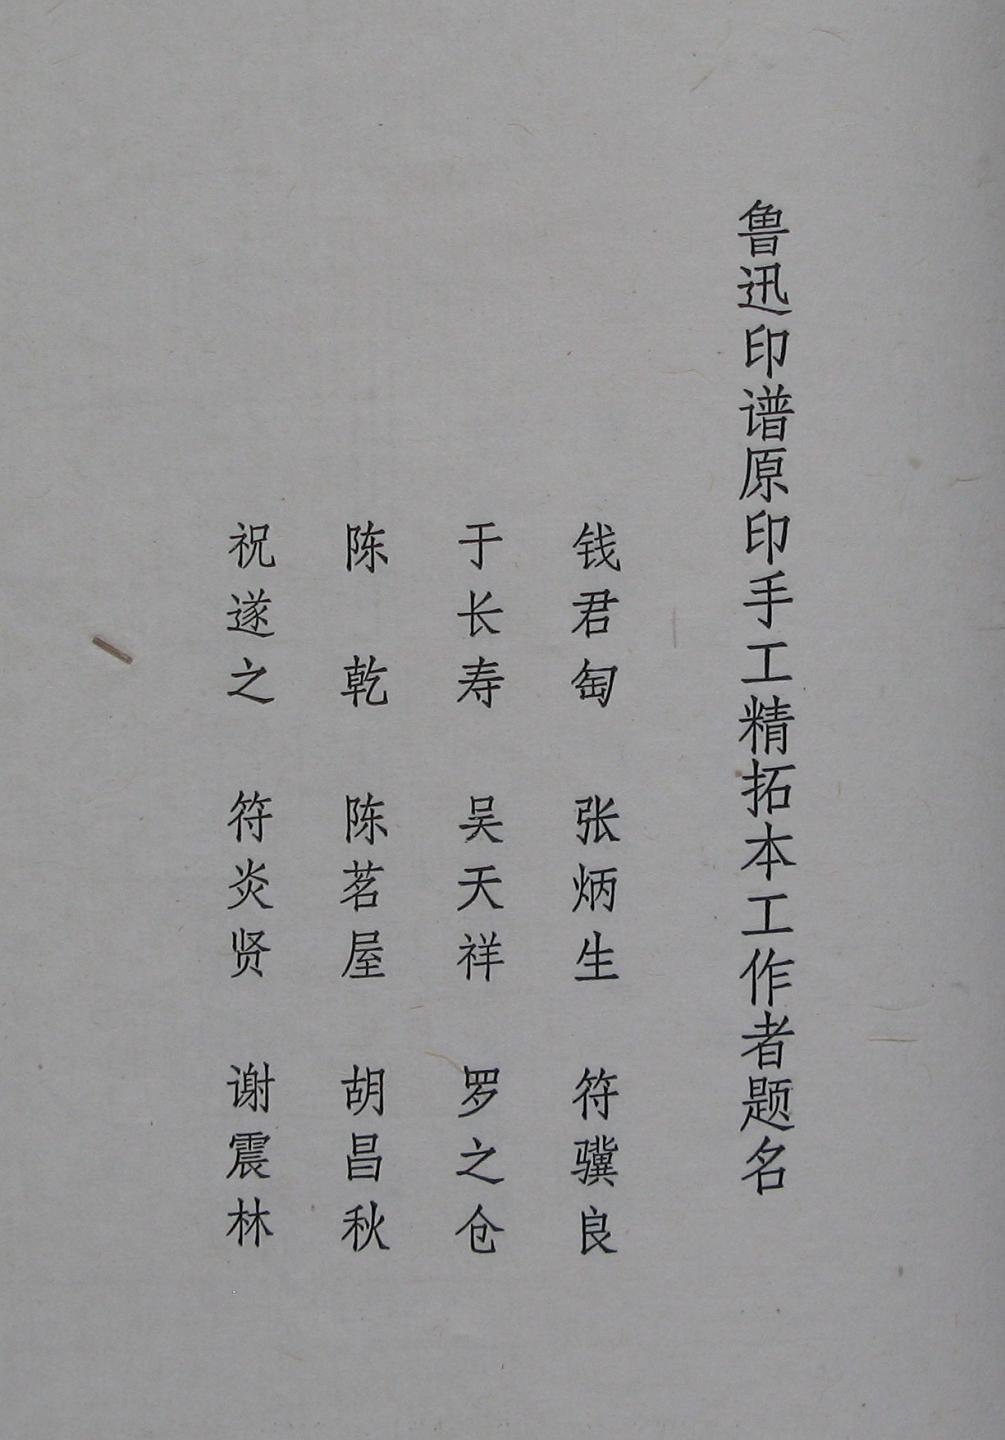 鲁迅印谱原印手工精拓本工作者题名
钱君匋 张炳生 符骥良
于长寿 吴天祥 罗之仓
陈 乾 陈茗屋 胡昌秋
祝遂之 符炎贤 谢震林